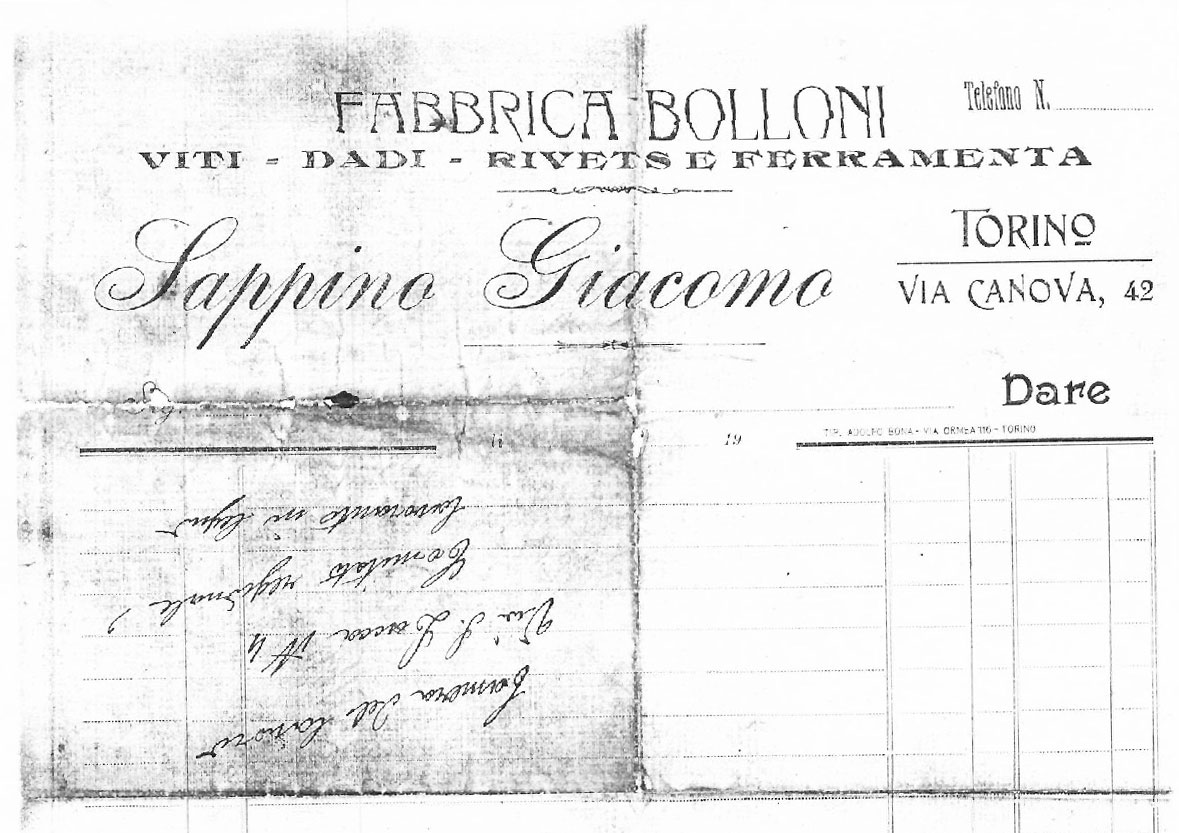 FABBRICA BOLLONI
Telefono N.
VITI - DADI - RIVETS E FERRAMENTA
Sappino Giacomo
TORINO
VIA CANOVA, 42
Dare
li 19
TIP. ADOLFO BONA - VIA ORMEA 116 - TORINO
Camera del lavoro
Via S.
Comitato regionale
lavorante in legno